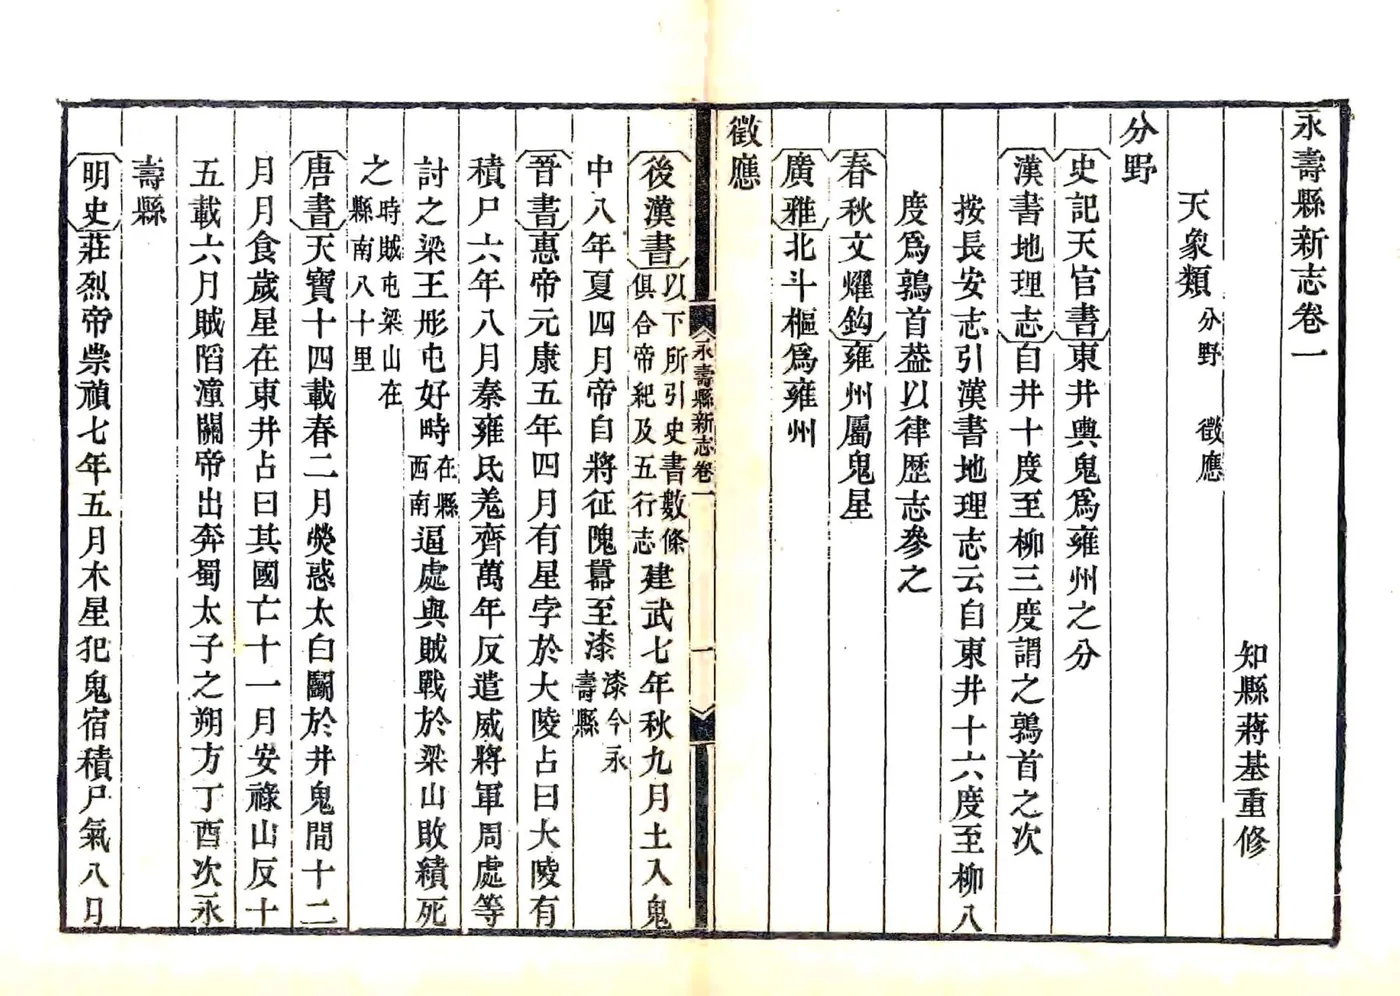 永壽縣新志卷一
知縣蔣基重修
天象類 分野 徵應
分野
史記天官書東井輿鬼爲雍州之分
漢書地理志自井十度至柳三度謂之鶉首之次
按長安志引漢書地理志云自東井十六度至柳八
度爲鶉首葢以律歷志參之
春秋文燿鈎雍州屬鬼星
廣雅北斗樞爲雍州
徵應
永壽縣新志卷一
一
後漢書以下所引史書數條俱合帝紀及五行志建武七年秋九月土入鬼
中八年夏四月帝自將征隗囂至漆漆今永壽縣
晉書惠帝元康五年四月有星孛於大陵占曰大陵有
積尸六年八月秦雍氐羗齊萬年反遣威將軍周處等
討之梁王肜屯好畤在縣西南逼處與賊戰於梁山敗績死
之時賊屯梁山在縣南八十里
唐書天寶十四載春二月熒惑太白鬭於井鬼間十二
月月食歲星在東井占曰其國亡十一月安祿山反十
五載六月賊䧟潼關帝出奔蜀太子之朔方丁酉次永
壽縣
明史莊烈帝崇禎七年五月木星犯鬼宿積尸氣八月